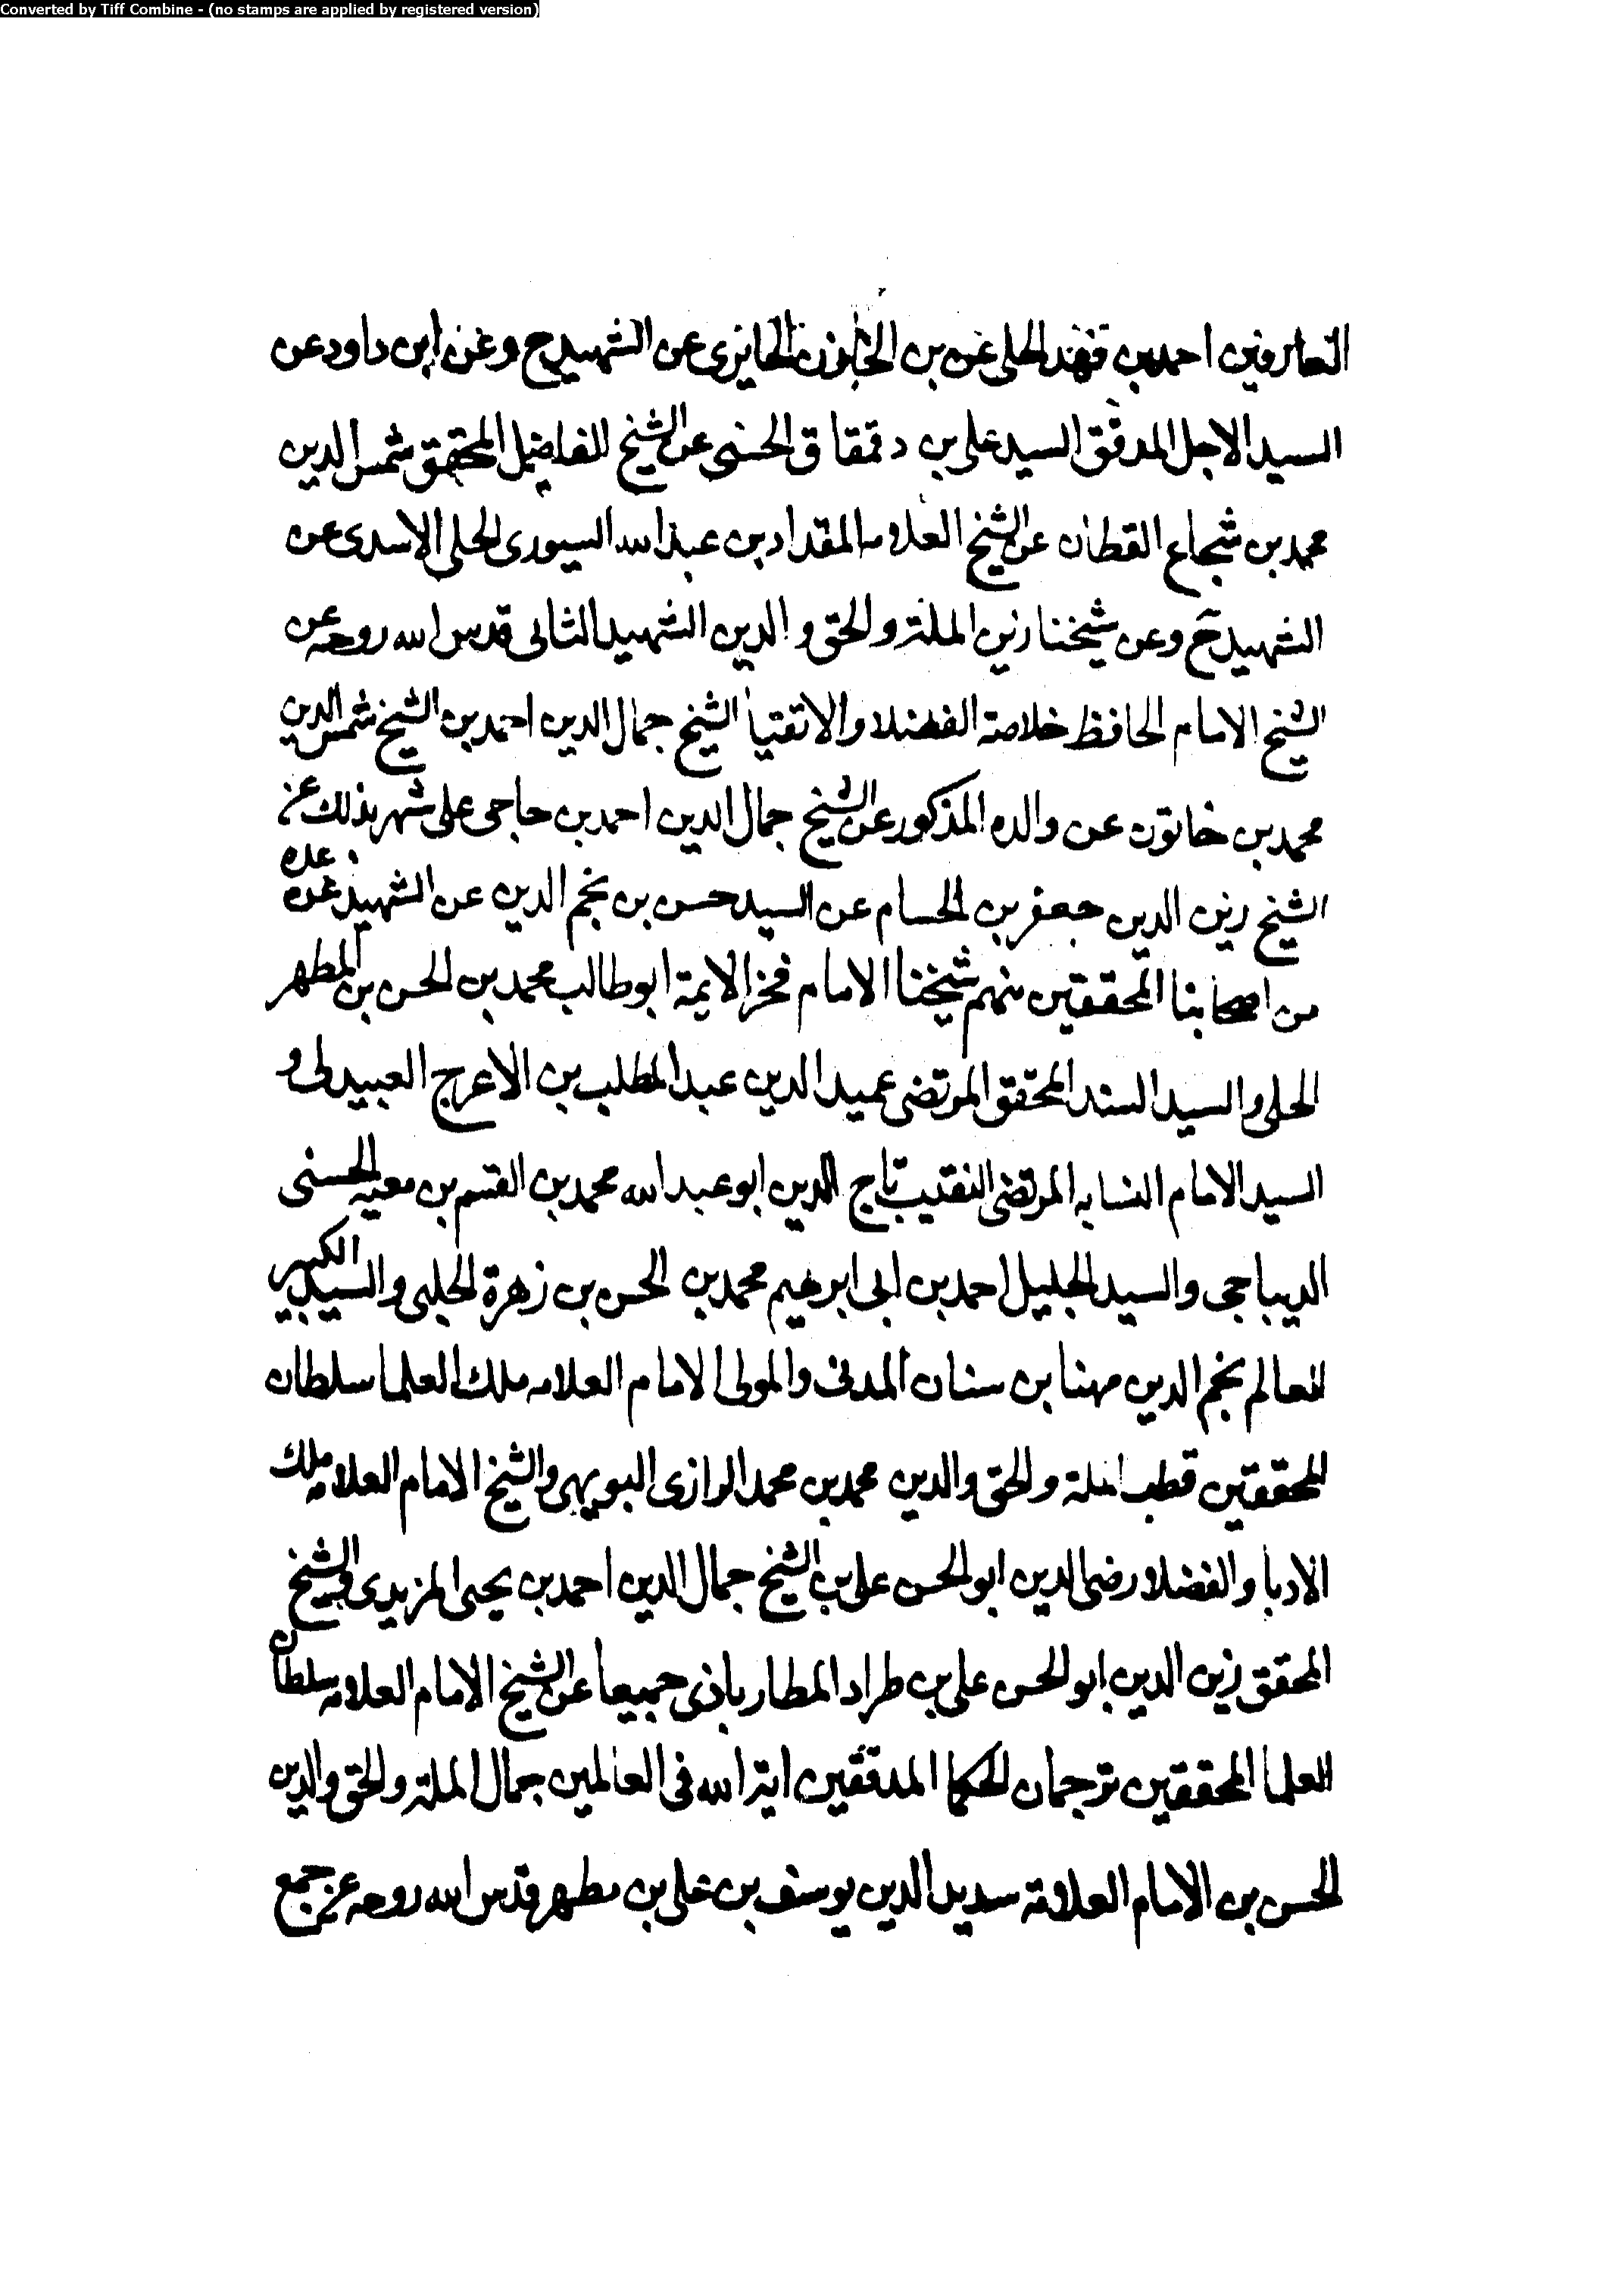 Converted by Tiff Combine - (no stamps are applied by registered version)
العارفين احمد بن فهد الحلى عن بن الخازن الحايرى عن الشهيد ح وعن ابن داود عن
السيد الاجل المدقق السيد على بن دقماق الحسنى عن الشيخ الفاضل المحقق شمس الدين
محمد بن شجاع القطان عن الشيخ العلامه المقداد بن عبد الله السيورى الحلى الاسدى عن
الشهيد ح وعن شيخنا زين الملة والحق والدين الشهيد الثانى قدس الله روحه عن
الشيخ الامام الحافظ خلاصة الفضلا والاتقيا الشيخ جمال الدين احمد بن الشيخ شمس الدين
محمد بن خاتون عن والده المذكور عن الشيخ جمال الدين احمد بن حاجى على شهر بذلك عن
الشيخ زين الدين جعفر بن الحسام عن السيد حسن بن نجم الدين عن الشهيد عن عده
من اصحابنا المحققين منهم شيخنا الامام فخر الايمة ابو طالب محمد بن الحسن بن المطهر
الحلى والسيد السند المحقق المرتضى عميد الدين عبد المطلب بن الاعرج العبيدلى و
السيد الامام النسابه المرتضى النقيب تاج الدين ابو عبد الله محمد بن القسم بن معيه الحسنى
الديباجى والسيد الجليل احمد بن ابى ابرهيم محمد بن الحسن بن زهرة الحلبى والسيد الكبير
العالم نجم الدين مهنا بن سنان المدنى والمولى الامام العلامه ملك العلما سلطان
المحققين قطب الملة والحق والدين محمد بن محمد الرازى البويهى والشيخ الامام العلامه ملك
الادبا والفضلا رضى الدين ابو الحسن على بن الشيخ جمال الدين احمد بن يحيى المزيدى والشيخ
المحقق زين الدين ابو الحسن على بن طراد المطار باذى جميعا عن الشيخ الامام العلامه سلطان
العلما المحققين ترجمان الحكما المدققين اية الله فى العالمين جمال الملة والحق والدين
الحسن بن الامام العلامة سديد الدين يوسف بن على بن مطهر قدس الله روحه عن جمع